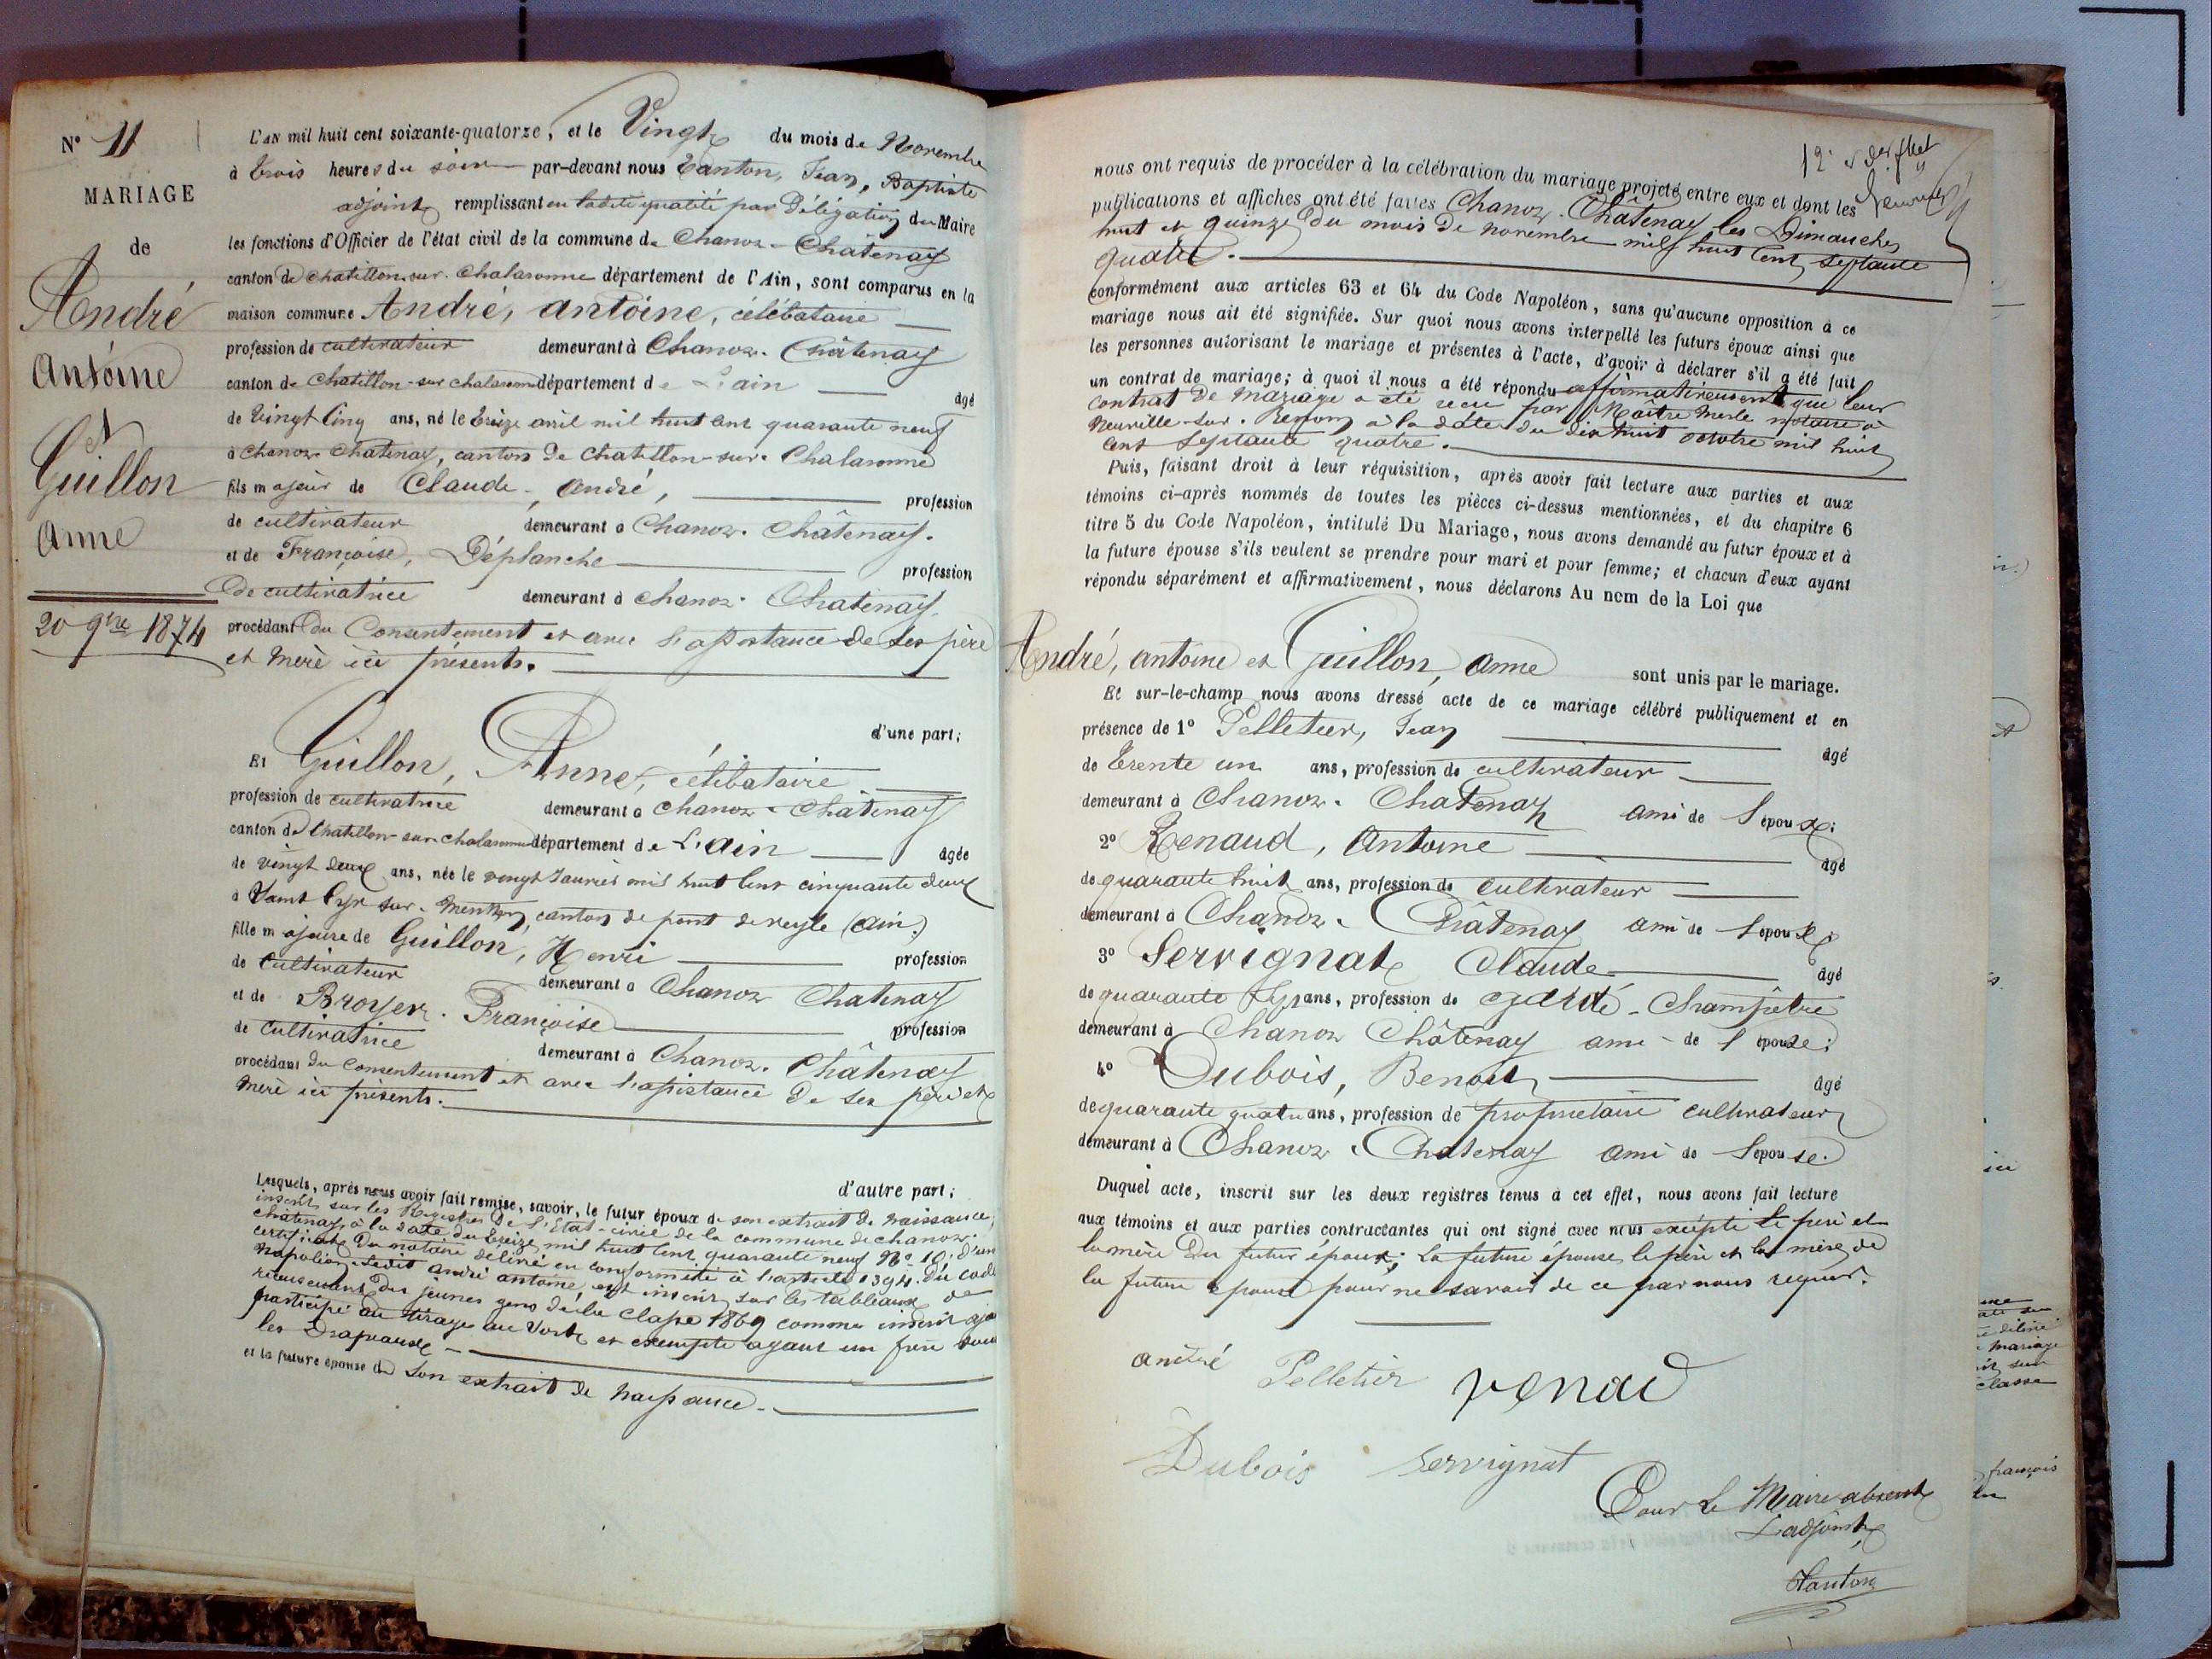 N° 11
MARIAGE
de
André
Antoine
et
Guillon
Anne
20 9bre 1874
L'AN mil huit cent soixante-quatorze, et le Vingt du mois de Novembre
à trois heures du soir par-devant nous Tanton, Jean, Baptiste
adjoint remplissant en ladite qualité par Délégation du Maire
les fonctions d'Officier de l'état civil de la commune de Chanoz-Châtenay
canton de Chatillon-sur-Chalaronne département de l'Ain, sont comparus en la
maison commune André, antoine, célébataire
profession de cultivateur demeurant à Chanoz-Châtenay
canton de Chatillon-sur chalaronne département de L'ain âgé
de vingt cinq ans, né le treize avril mil huit cent quarante neuf
à Chanoz-Chatenay, canton de Chatillon-sur-Chalaronne
fils majeur de Claude-André, profession
de cultivateur demeurant à Chanoz-Châtenay.
et de Françoise, Déplanche profession
de cultivatrice demeurant à Chanoz-Chatenay
procédant Du Consentement et avec l'assistance de ses père
et mère ici présents.
d'une part;
Et Guillon, Anne, célibataire
profession de cultivatrice demeurant à Chanoz-Châtenay
canton de Chatillon-sur-chalaronne département de L'ain âgée
de vingt deux ans, née le vingt Janvier mil huit cent cinquante deux
à Saint Cyr sur-Menthon, canton de pont de veyle (ain.)
fille majeure de Guillon, Henri profession
de Cultivateur demeurant à Chanoz Chatenay
et de Broyer. Françoise profession
de Cultivatrice demeurant à Chanoz-Châtenay
procédant du Consentement et avec l'assistance De ses père et
mère ici présents.
d'autre part;
Lesquels, après nous avoir fait remise, savoir, le futur époux de son extrait de naissance,
inscrit sur les Registres De l'Etat-civil de la commune de chanoz-
châtenay, à la date du treize mil huit cent quarante neuf N° 10; d'un
certificat Du notaire délivré en conformité à l'article 1394. Du code
Napoléon. Ledit André antoine, est inscrit sur les tableaux de
recensement Des jeunes gens de la classe 1869 comme
participé au tirage au sort et exempté ayant un frère sous
les Drapeaux
et la future épouse de Son extrait de naissance.
nous ont requis de procéder à la célébration du mariage projeté entre eux et dont les
publications et affiches ont été faites Chanoz-Châtenay les Dimanches
huit et quinze du mois De novembre mil huit cent septante
quatre.
conformément aux articles 63 et 64 du Code Napoléon, sans qu'aucune opposition à ce
mariage nous ait été signifiée. Sur quoi nous avons interpellé les futurs époux ainsi que
les personnes autorisant le mariage et présentes à l'acte, d'avoir à déclarer s'il a été fait
un contrat de mariage; à quoi il nous a été répondu affirmativement que leur
contrat De mariage a été recu par Maître Merle notaire à
Neuville-sur-Renon à la date du dix huit octobre mil huit
cent septante quatre.
Puis, faisant droit à leur réquisition, après avoir fait lecture aux parties et aux
témoins ci-après nommés de toutes les pièces ci-dessus mentionnées, et du chapitre 6
titre 5 du Code Napoléon, intitulé Du Mariage, nous avons demandé au futur époux et à
la future épouse s'ils veulent se prendre pour mari et pour femme; et chacun d'eux ayant
répondu séparément et affirmativement, nous déclarons Au nom de la Loi que
André, antoine et Guillon, anne sont unis par le mariage.
Et sur-le-champ nous avons dressé acte de ce mariage célébré publiquement et en
présence de 1° Pelletier, Jean âgé
de trente un ans, profession de cultivateur
demeurant à Chanoz-Chatenay ami de l'époux;
2° Renaud, Antoine âgé
de quarante huit ans, profession de cultivateur
demeurant à Chanoz-Châtenay ami de l'époux;
3° Servignat Claude âgé
de quarante ans, profession de garde-Champêtre
demeurant à Chanoz Châtenay ami de l'épouse;
4° Dubois, Benoit âgé
de quarante quatre ans, profession de propriétaire cultivateur
demeurant à Chanoz-Chatenay ami de l'épouse.
Duquel acte, inscrit sur les deux registres tenus à cet effet, nous avons fait lecture
aux témoins et aux parties contractantes qui ont signé avec nous excépté le père et
la mère Du futur époux; la future épouse, le père et la mère de
la future épouse pour ne savoir de ce par nous requis.
andré Pelletier renad
Dubois Servignat
Pour Le Maire absent
L'adjoint,
Tanton